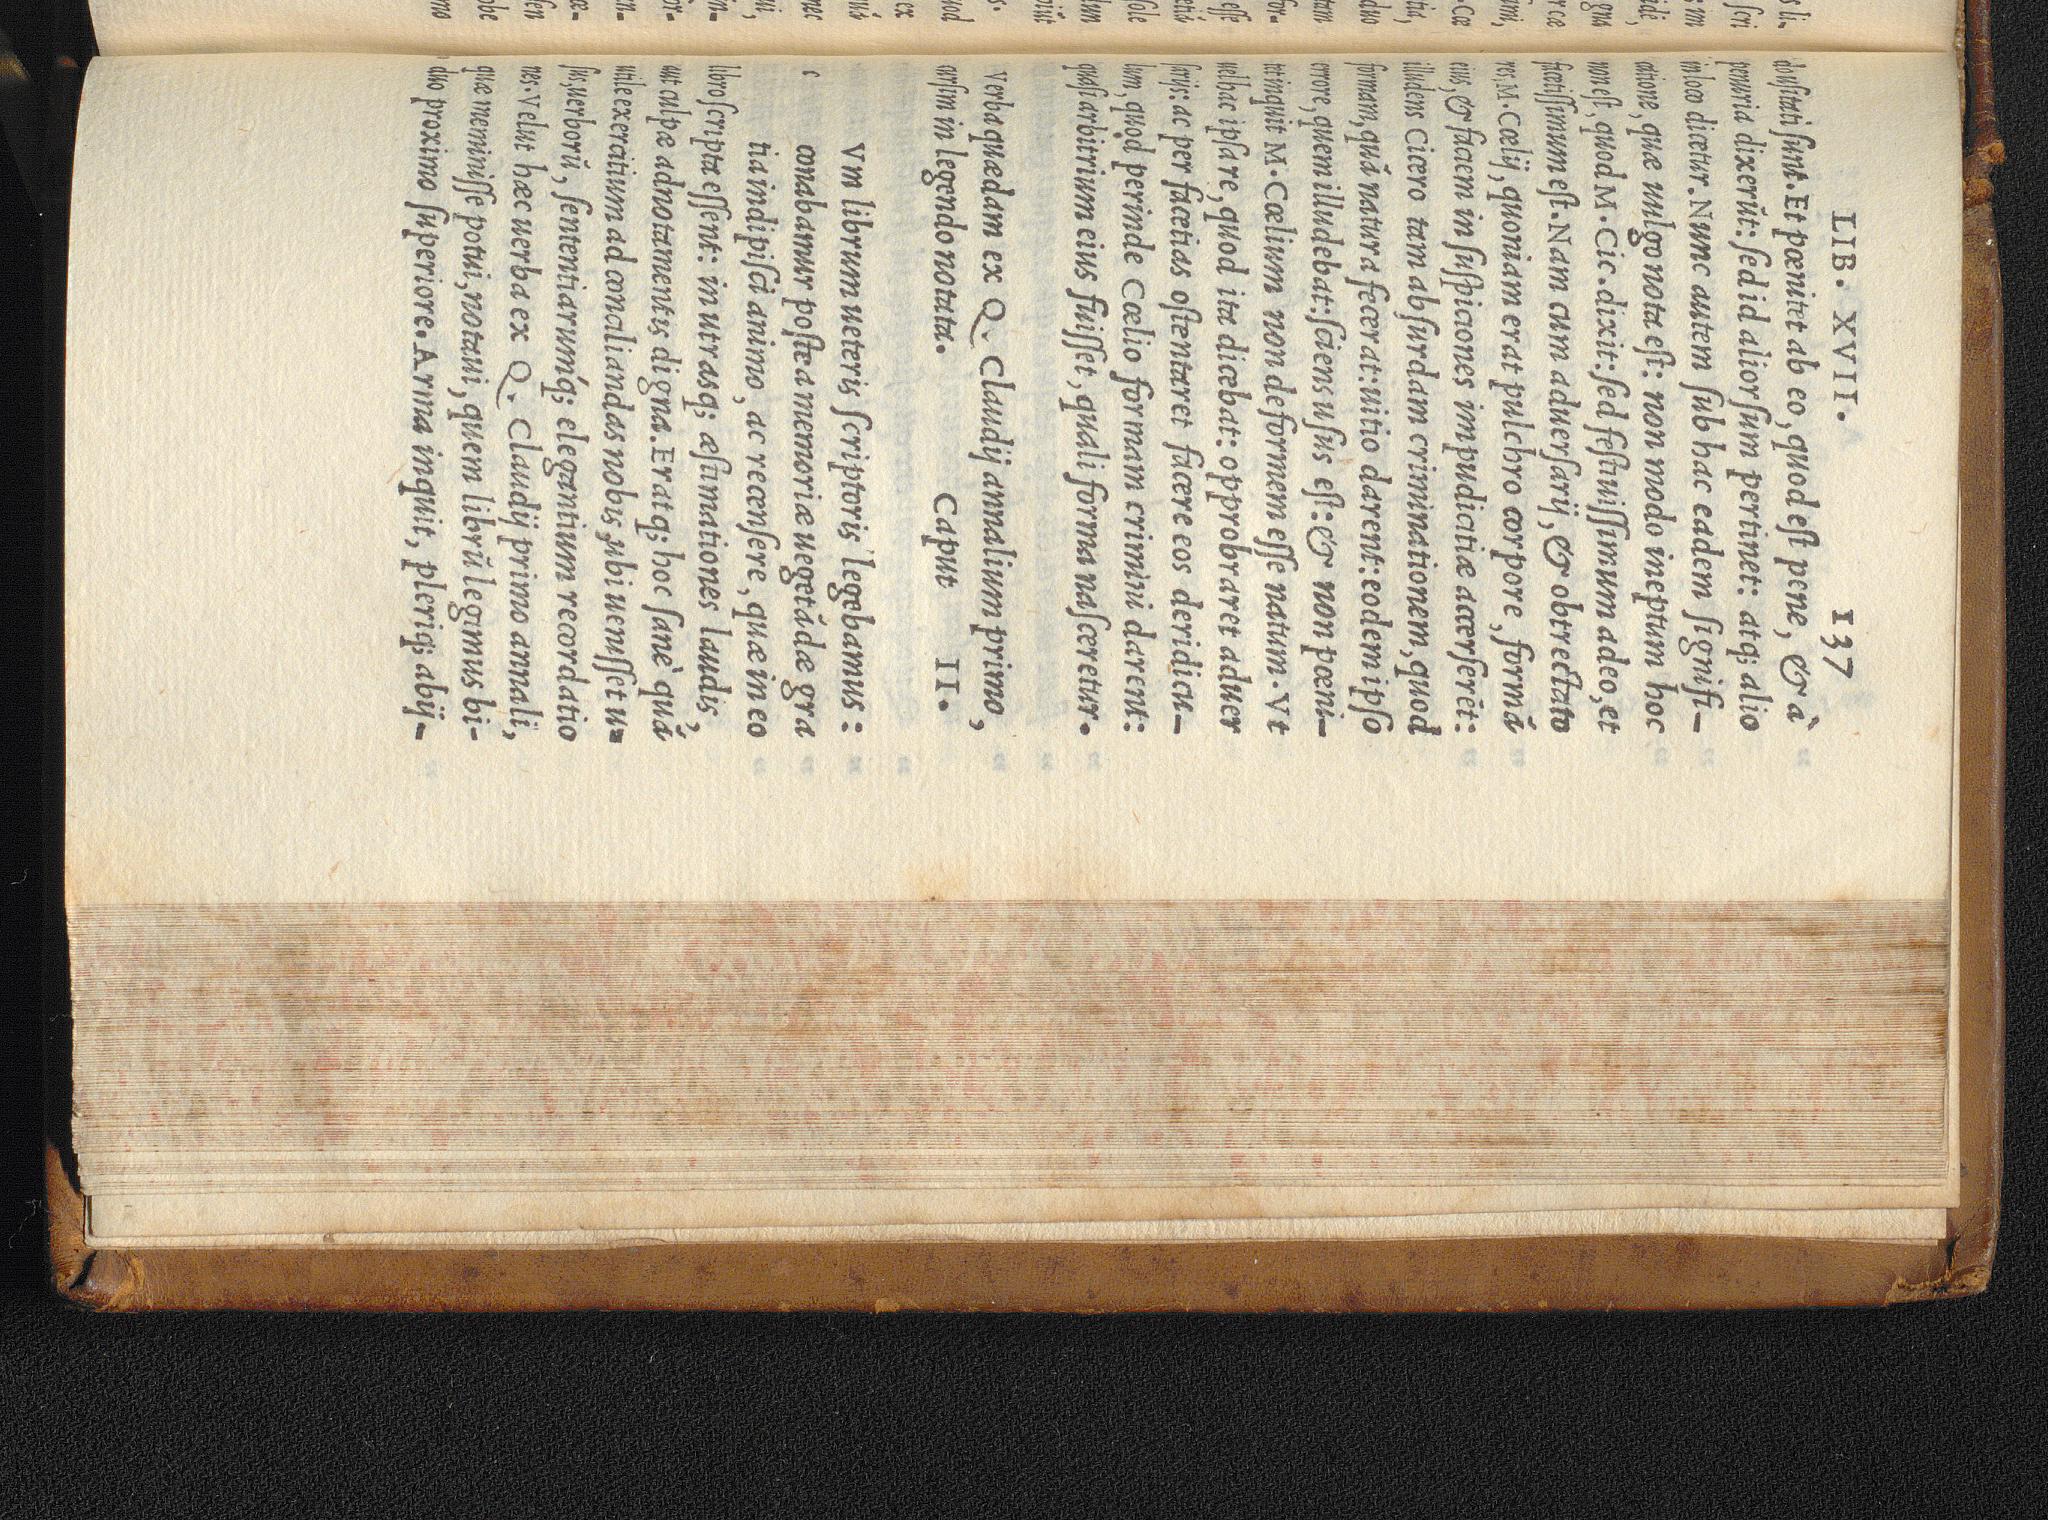 LIB. XVII. 137
abusitati sunt. Et pœnitet ab eo, quod est pene, & à
penuria dixerũt: sed id aliorsum pertinet: atq; alio
in loco dicetur. Nunc autem sub hac eadem signifi-
catione, quæ uulgo nota est: non modo ineptum hoc
non est, quod M. Cic. dixit: sed festiuissimum adeo, et
facetissimum est. Nam cum aduersarij, & obtrectato
res M. Cœlij, quoniam erat pulchro corpore, formã
eius, & faciem in suspiciones impudicitiæ accerserẽt:
illudens Cicero tam absurdam criminationem, quod
formam, quã natura fecerat: uitio darent: eodem ipso
errore, quem illudebat: sciens usus est: & non pœni-
tet inquit M. Cœlium non deformem esse natum. Vt
uel hac ipsa re, quod ita dicebat: opprobraret aduer
sarijs: ac per facetias ostentaret facere eos deridicu-
lum, quod perinde Cœlio formam crimini darent:
quasi arbitrium eius fuisset, quali forma nasceretur.
Verba quædam ex Q. Claudij annalium primo,
cursim in legendo notata. Caput II.
c Vm librum ueteris scriptoris legebamus:
conabamur postea memoriæ uegetãdæ gra
tia indipisci animo, ac recensere, quæ in eo
libro scripta essent: in utrasq; æstimationes laudis,
aut culpæ adnotamentis digna. Eratq; hoc sanè quã
utile exercitium ad conciliandas nobis, ubi uenisset u-
sus, uerborũ, sententiarumq́; elegantium recordatio
nes. Velut hæc uerba ex Q. Claudij primo annali,
quæ meminisse potui, notaui, quem librũ legimus bi-
duo proximo superiore. Arma inquit, pleriq; abij-